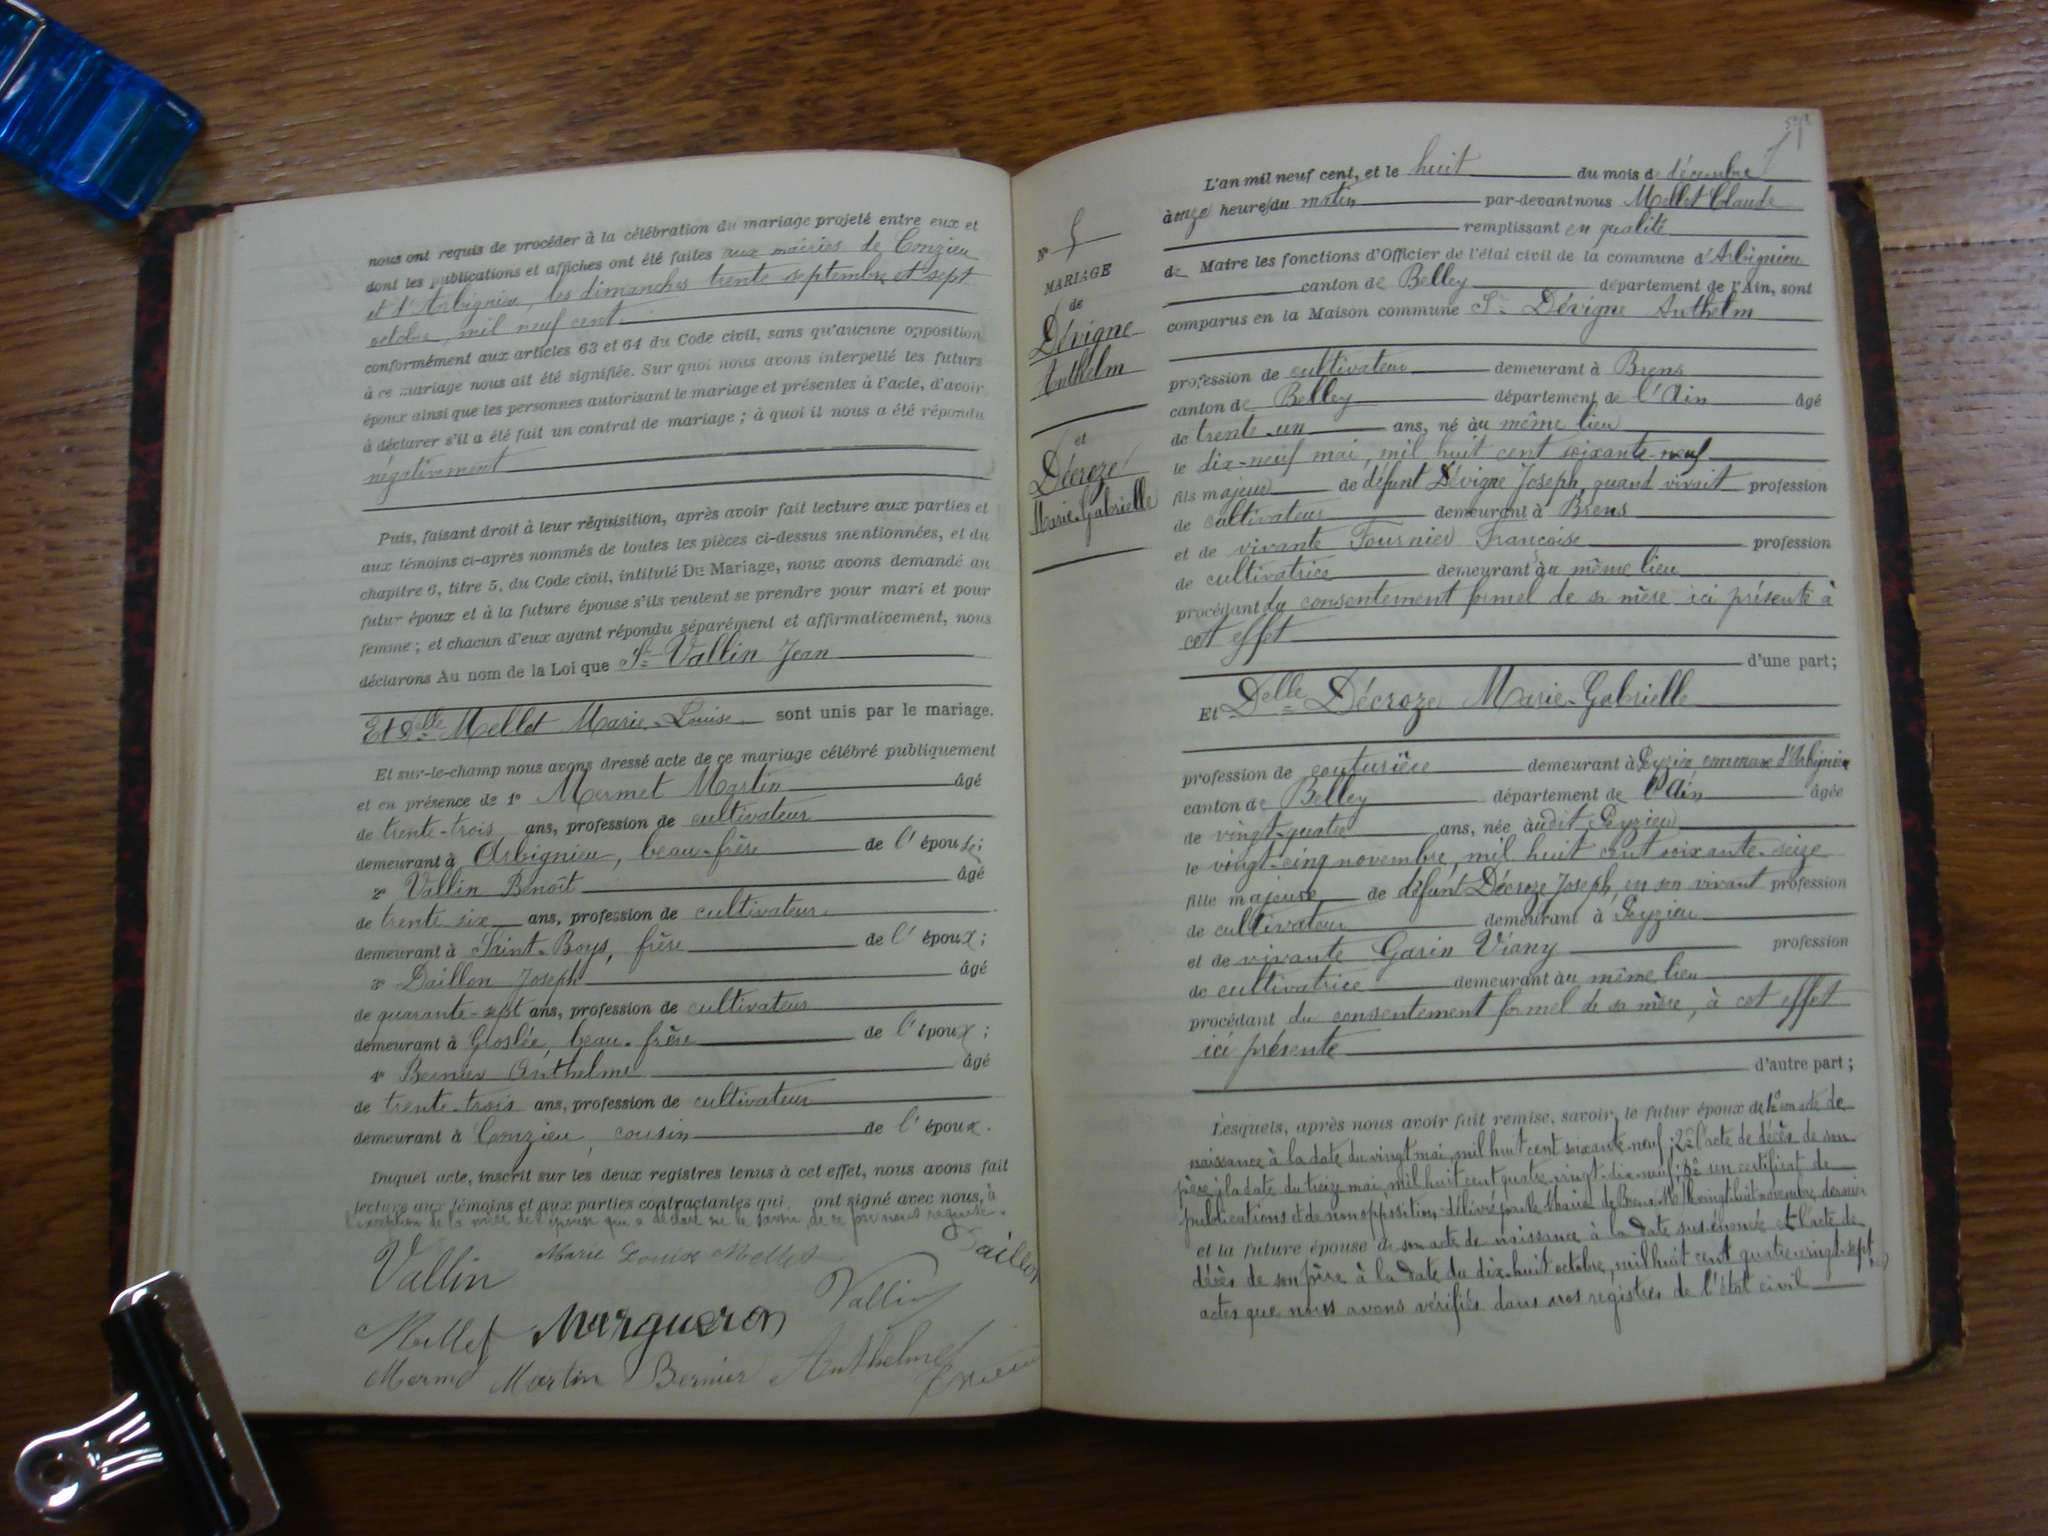 nous ont requis de procéder à la célébration du mariage projeté entre eux et
dont les publications et affiches ont été faites aux mairies de Conzieu
et d'Arbignieu, les dimanches trente septembre et sept
octobre, mil neuf cent
conformément aux articles 63 et 64 du Code civil, sans qu'aucune opposition
à ce mariage nous ait été signifiée. Sur quoi nous avons interpellé les futurs
époux ainsi que les personnes autorisant le mariage et présentes à l'acte, d'avoir
à déclarer s'il a été fait un contrat de mariage ; à quoi il nous a été répondu
négativement
Puis, faisant droit à leur réquisition, après avoir fait lecture aux parties et
aux témoins ci-après nommés de toutes les pièces ci-dessus mentionnées, et du
chapitre 6, titre 5, du Code civil, intitulé Du Mariage, nous avons demandé au
futur époux et à la future épouse s'ils veulent se prendre pour mari et pour
femme ; et chacun d'eux ayant répondu séparément et affirmativement, nous
déclarons Au nom de la Loi que Sr Vallin Jean
Et Delle Mellet Marie-Louise sont unis par le mariage.
Et sur-le-champ nous avons dressé acte de ce mariage célébré publiquement
et en présence de 1º Mermet Martin âgé
de trente-trois ans, profession de cultivateur
demeurant à Arbignieu, beau-frère de l'épouse;
2º Vallin Benoît âgé
de trente six ans, profession de cultivateur.
demeurant à Saint-Boys, frère de l'époux;
3º Daillon Joseph âgé
de quarante-sept ans, profession de cultivateur
demeurant à Groslée, beau-frère de l'époux;
4º Bernier Anthelme âgé
de trente-trois ans, profession de cultivateur
demeurant à Conzieu, cousin de l'époux.
Duquel acte, inscrit sur les deux registres tenus à cet effet, nous avons fait
lecture aux témoins et aux parties contractantes qui ont signé avec nous, à
l'exception de la mère de l'épouse qui a déclaré ne le savoir, de ce par nous requise.
Vallin Marie Louise Mellet Daillon
Mellet Margueron Vallin
Mermet Martin Bernier Anthelme
N° 5
MARIAGE
de
Dévigne
Anthelm
et
Décroze
Marie-Gabrielle
L'an mil neuf cent, et le huit du mois de décembre
à onze heures du matin par-devant nous Mellet Claude
remplissant en qualité
de Maire les fonctions d'Officier de l'état civil de la commune d'Arbignieu
canton de Belley département de l'Ain, sont
comparus en la Maison commune Sr Dévigne Anthelm
profession de cultivateur demeurant à Brens
canton de Belley département de l'Ain âgé
de trente-un ans, né au même lieu
le dix-neuf mai, mil huit cent soixante-neuf
fils majeur de défunt Dévigne Joseph, quand vivait profession
de cultivateur demeurant à Brens
et de vivante Fournier Françoise profession
de cultivatrice demeurant au même lieu
procédant du consentement formel de sa mère ici présente à
cet effet
d'une part;
Et Delle Décroze Marie-Gabrielle
profession de couturière demeurant à Peyzieu commune d'Arbignieu
canton de Belley département de l'Ain âgée
de vingt-quatre ans, née audit Peyzieu
le vingt-cinq novembre, mil huit cent soixante-seize
fille majeure de défunt Décroze Joseph, en son vivant profession
de cultivateur demeurant à Peyzieu
et de vivante Garin Viany profession
de cultivatrice demeurant au même lieu
procédant du consentement formel de sa mère, à cet effet
ici présente
d'autre part;
Lesquels, après nous avoir fait remise, savoir, le futur époux de 1º son acte de
naissance à la date du vingt mai, mil huit cent soixante-neuf; 2º l'acte de décès de son
père à la date du treize mai, mil huit cent quatre-vingt-dix-neuf; 3º un certificat de
publications et de non opposition délivré par le Maire de Brens le vingt-huit novembre dernier
et la future épouse de son acte de naissance à la date sus-énoncée et l'acte de
décès de son père à la date du dix-huit octobre, mil huit cent quatre-vingt-sept,
actes que nous avons vérifiés dans nos registres de l'état civil